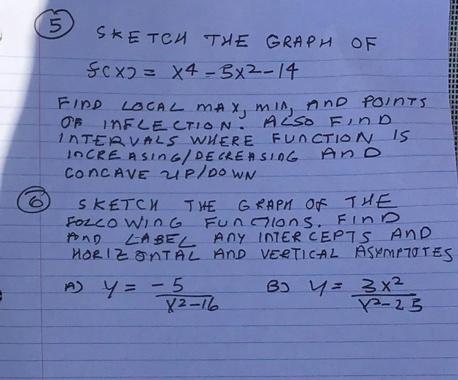 5 SKETCH THE GRAPH OF
f(x) = x4 - 5x2 - 14
FIND LOCAL MAX, MIN, AND POINTS
OF INFLECTION. ALSO FIND
INTERVALS WHERE FUNCTION IS
INCREASING/DECREASING AND
CONCAVE UP/DOWN
6 SKETCH THE GRAPH OF THE
FOLLOWING FUNCTIONS. FIND
AND LABEL ANY INTERCEPTS AND
HORIZONTAL AND VERTICAL ASYMPTOTES
A) y = -5/(x2-16) B) y = 3x2/(x2-25)